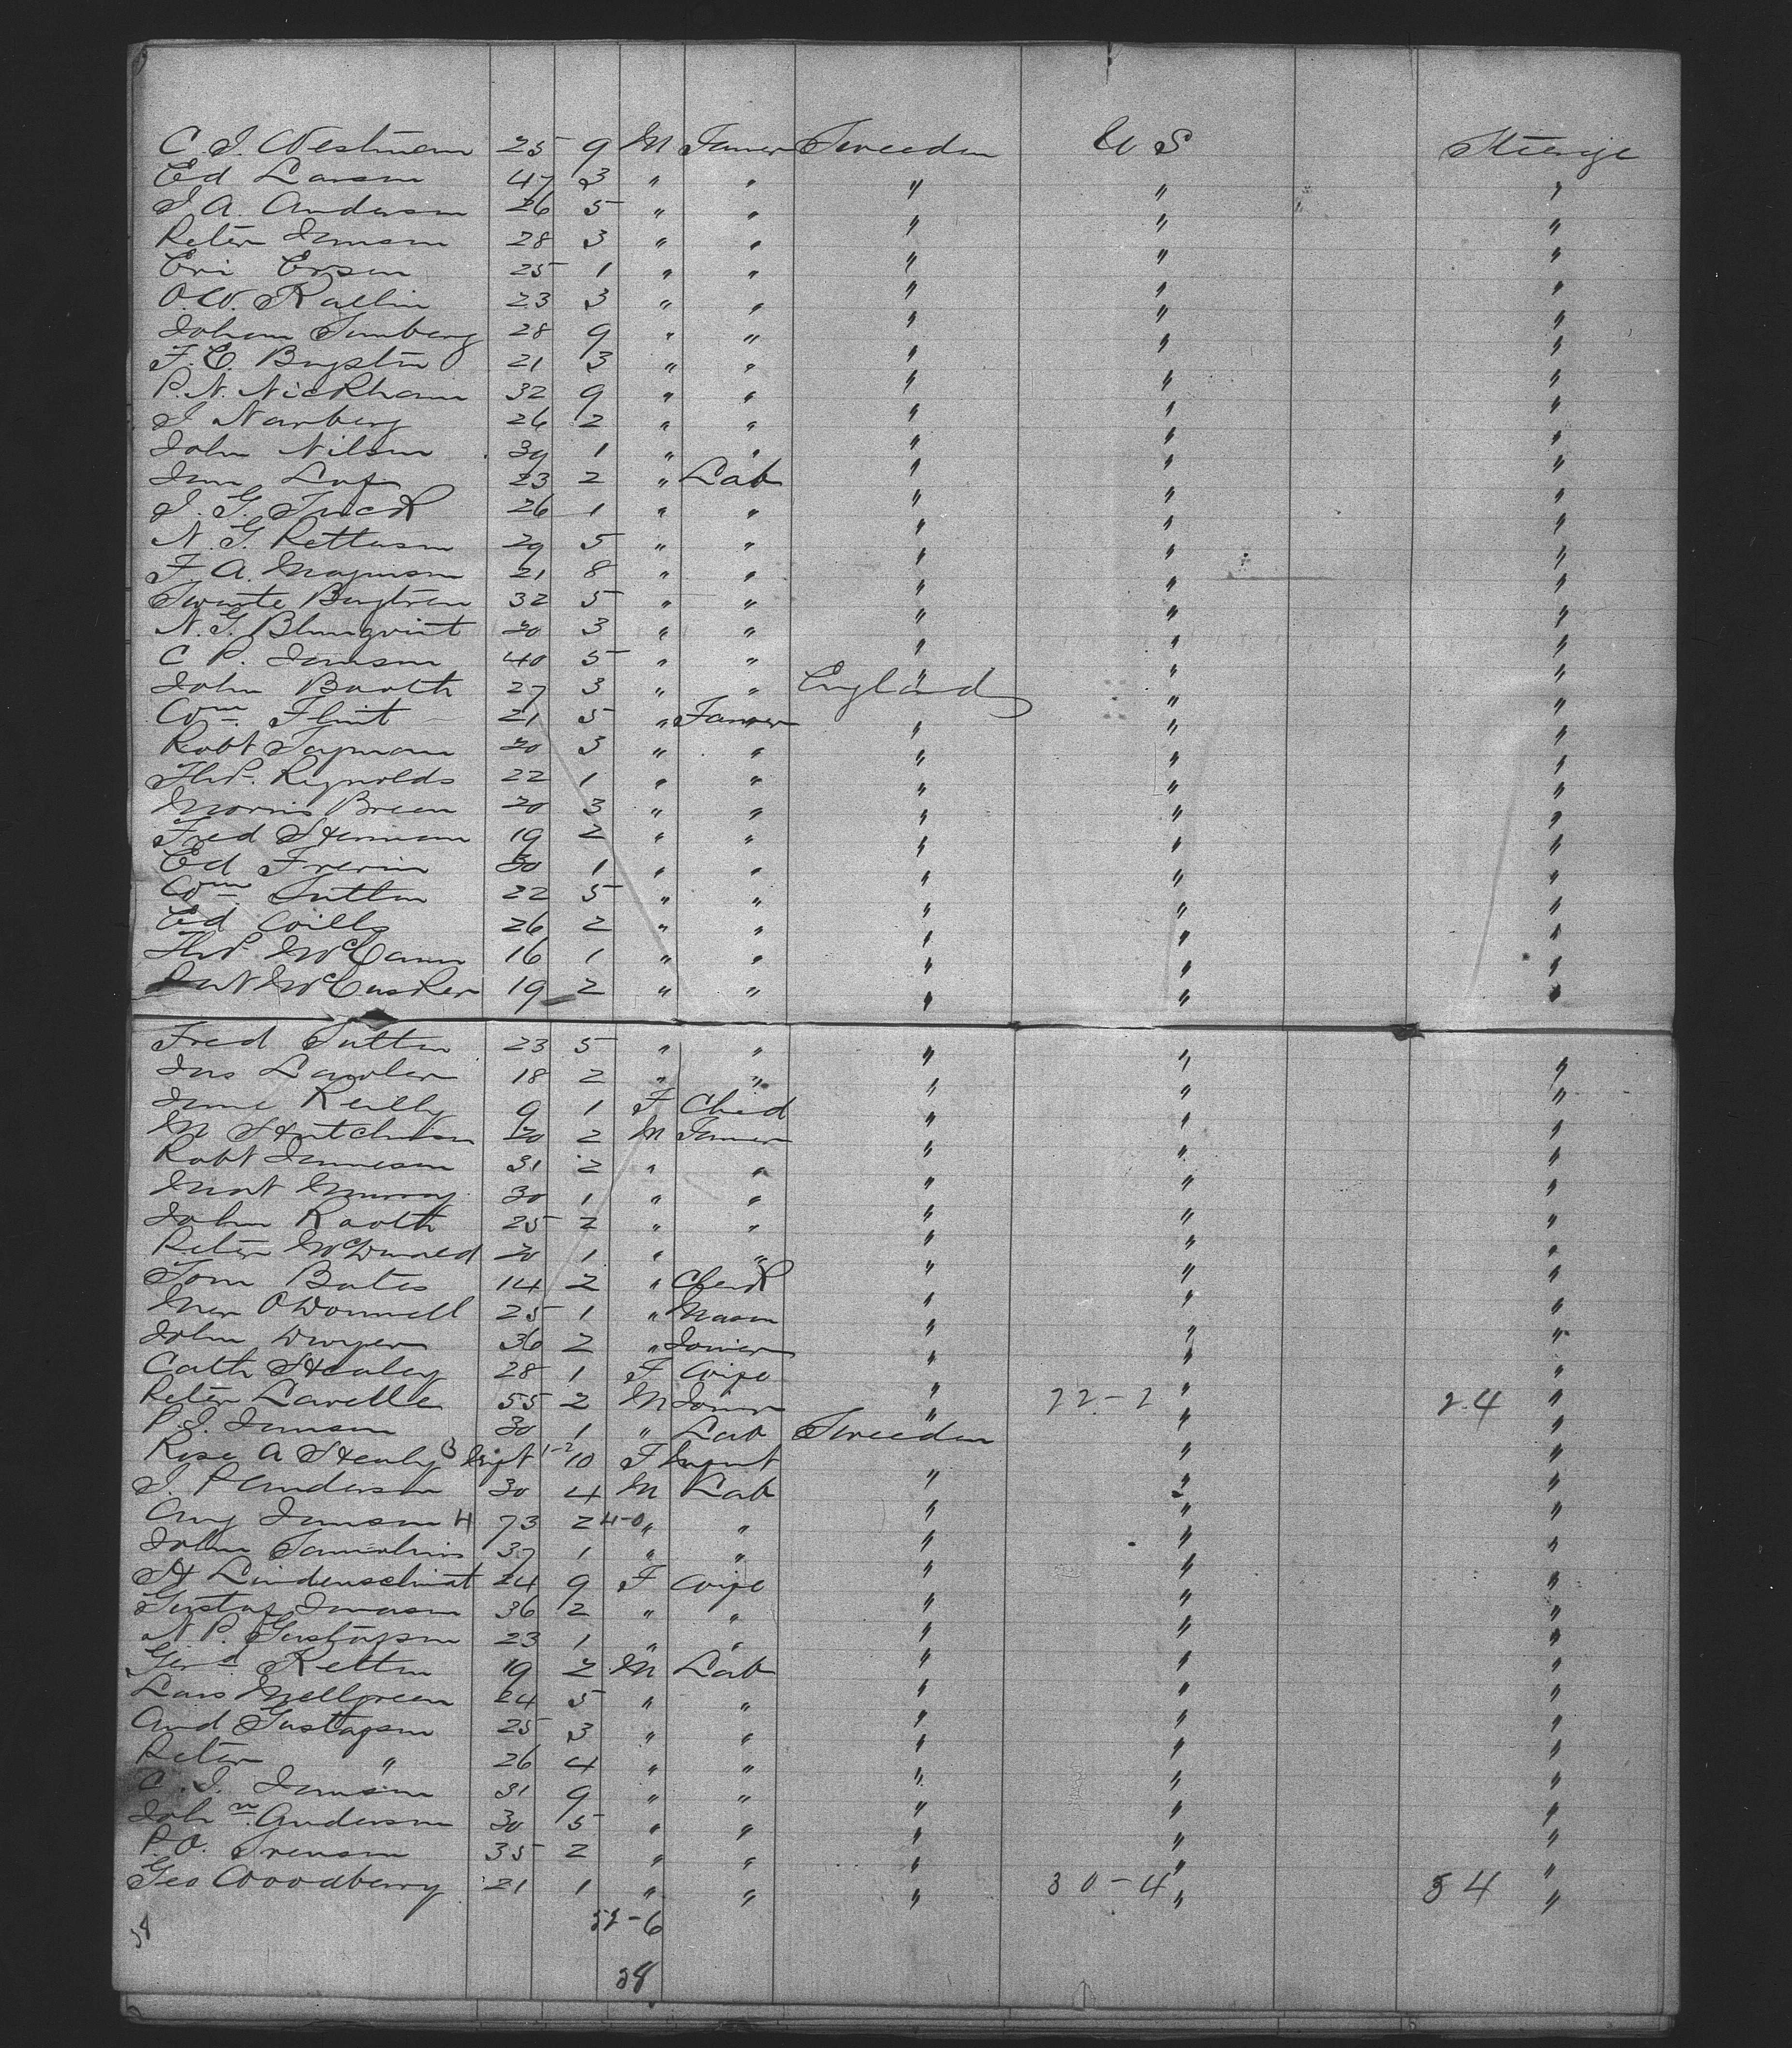 C. J. Westman 25 9 M Farmer Sweeden U S Steerage
Ed Larson 47 3 " " " " "
J. A. Anderson 26 5 " " " " "
Peter Jonson 28 3 " " " " "
Eri Erson 25 1 " " " " "
O. W. Kallin 23 3 " " " " "
Johan Sunberg 28 9 " " " " "
F. E. 21 3 " " " " "
P. N. Nickham 32 9 " " " " "
J Narberg 26 2 " " " " "
John Nilson 39 1 " " " " "
Lof 23 2 " Lab " " "
J. G. 26 1 " " " " "
N. G. Pettason 29 5 " " " " "
F. A. Magnison 21 8 " " " " "
32 5 " " " " "
N. G. Blumqvist 20 3 " " " " "
C P. Jonson 40 5 " " " " "
John Booth 27 3 " " England " "
Wm. Flint 21 5 " Farmer " " "
Robt 20 3 " " " " "
Thos. Reynolds 22 1 " " " " "
Morris Breen 20 3 " " " " "
Fred 19 2 " " " " "
Ed 30 1 " " " " "
Wm. Sutton 22 5 " " " " "
Ed Wills 26 2 " " " " "
Thos. McCann 16 1 " " " " "
Pat McCusker 19 2 " " " " "
Fred Sutton 23 5 " " " " "
Jas Lawler 18 2 " " " " "
Reilly 9 1 F Child " " "
M Hutchinson 20 2 M Farmer " " "
Robt Jameson 31 2 " " " " "
Mat Murray 30 1 " " " " "
John Rooth 25 2 " " " " "
Peter McDonald 20 1 " " " " "
Tom Bates 14 2 " Clerk " " "
O'Donnell 25 1 " Mason " " "
John Dwyer 36 2 " Joiner " " "
Cath Healey 28 1 F Wife " " "
Peter Lavelle 55 2 M Joiner " 22-2 " 24 "
P. J. Jonson 30 1 " Lab Sweeden " "
Rose A Healy B 1-2 10 F Infant " "
J. P Anderson 30 4 M Lab " " "
Aug Jonson H 73 2 4-0 " " " " "
John 37 1 " " " " "
H Lindenschmat 24 9 F Wife " " "
Gustaf 36 2 " " " " "
N. P. Gustafson 23 1 " " " " "
19 2 M Lab " " "
Lars Mellgreen 24 5 " " " " "
And Gustafson 25 3 " " " " "
Peter " 26 4 " " " " "
C. J. Jonson 31 9 " " " " "
John. Anderson 30 5 " " " " "
P. O. 35 2 " " " " "
Geo Woodberry 21 1 " " " 30-4 " 54 "
52-6
58